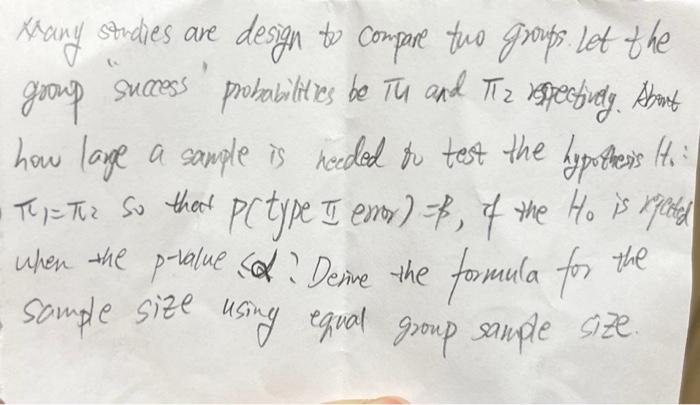 Many studies are design to compare two groups. Let the
group "success" probabilities be π1 and π2 respectively. About
how large a sample is needed to test the hypothesis H0:
π1=π2 so that p(type II error)=β, if the H0 is rejected
when the p-value ≤α? Derive the formula for the
sample size using equal group sample size.